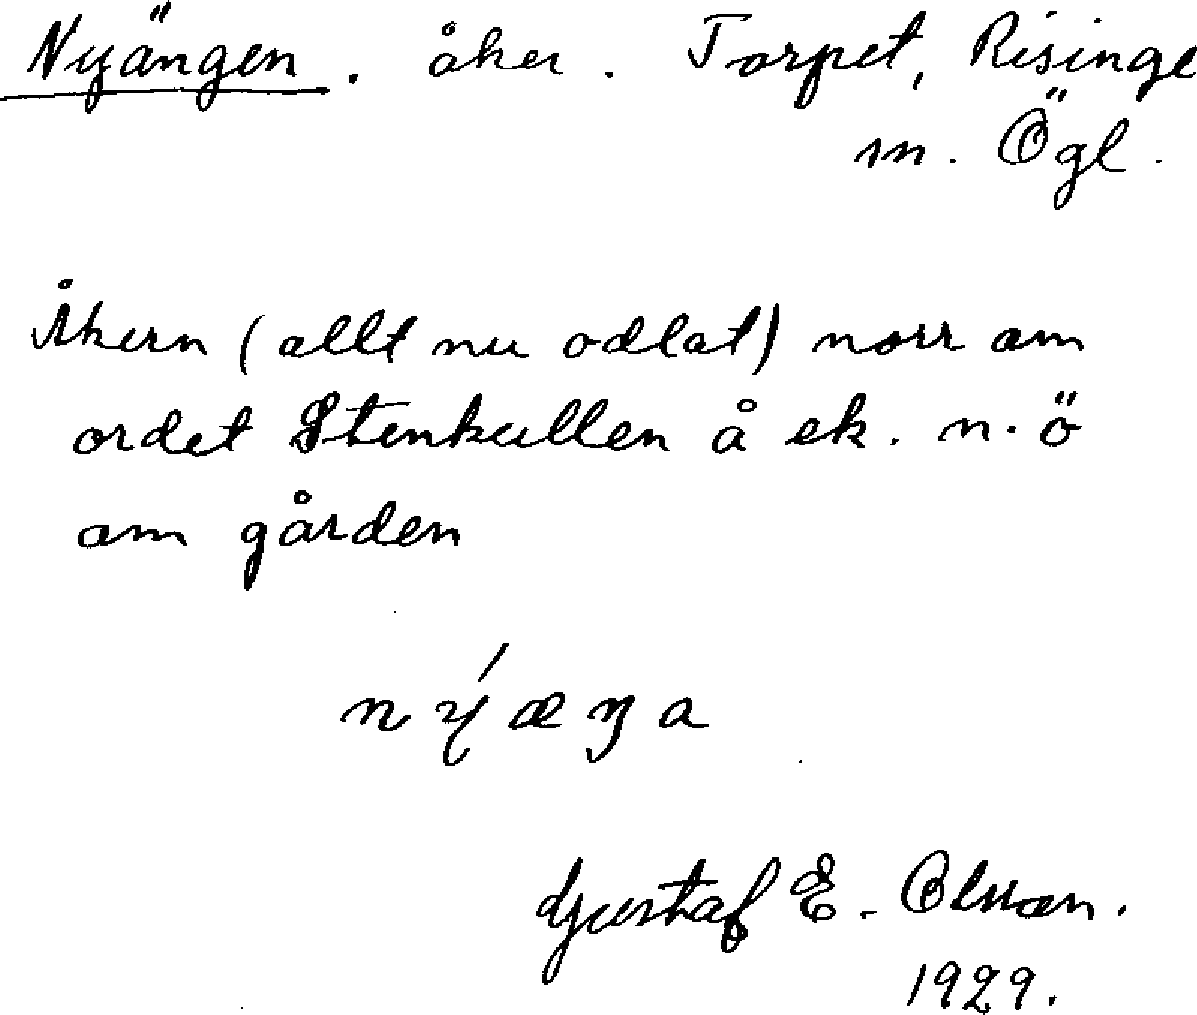 Nyängen. åker. Torpet, Risinge
sn. Ögl.
Åkern (allt nu odlat) norr om
ordet Stenkullen å ek. n.ö
om gården
nýæŋa
Gustaf E. Olsson.
1929.